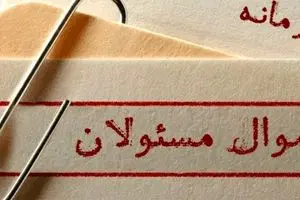 رمانه
موال مسئولان